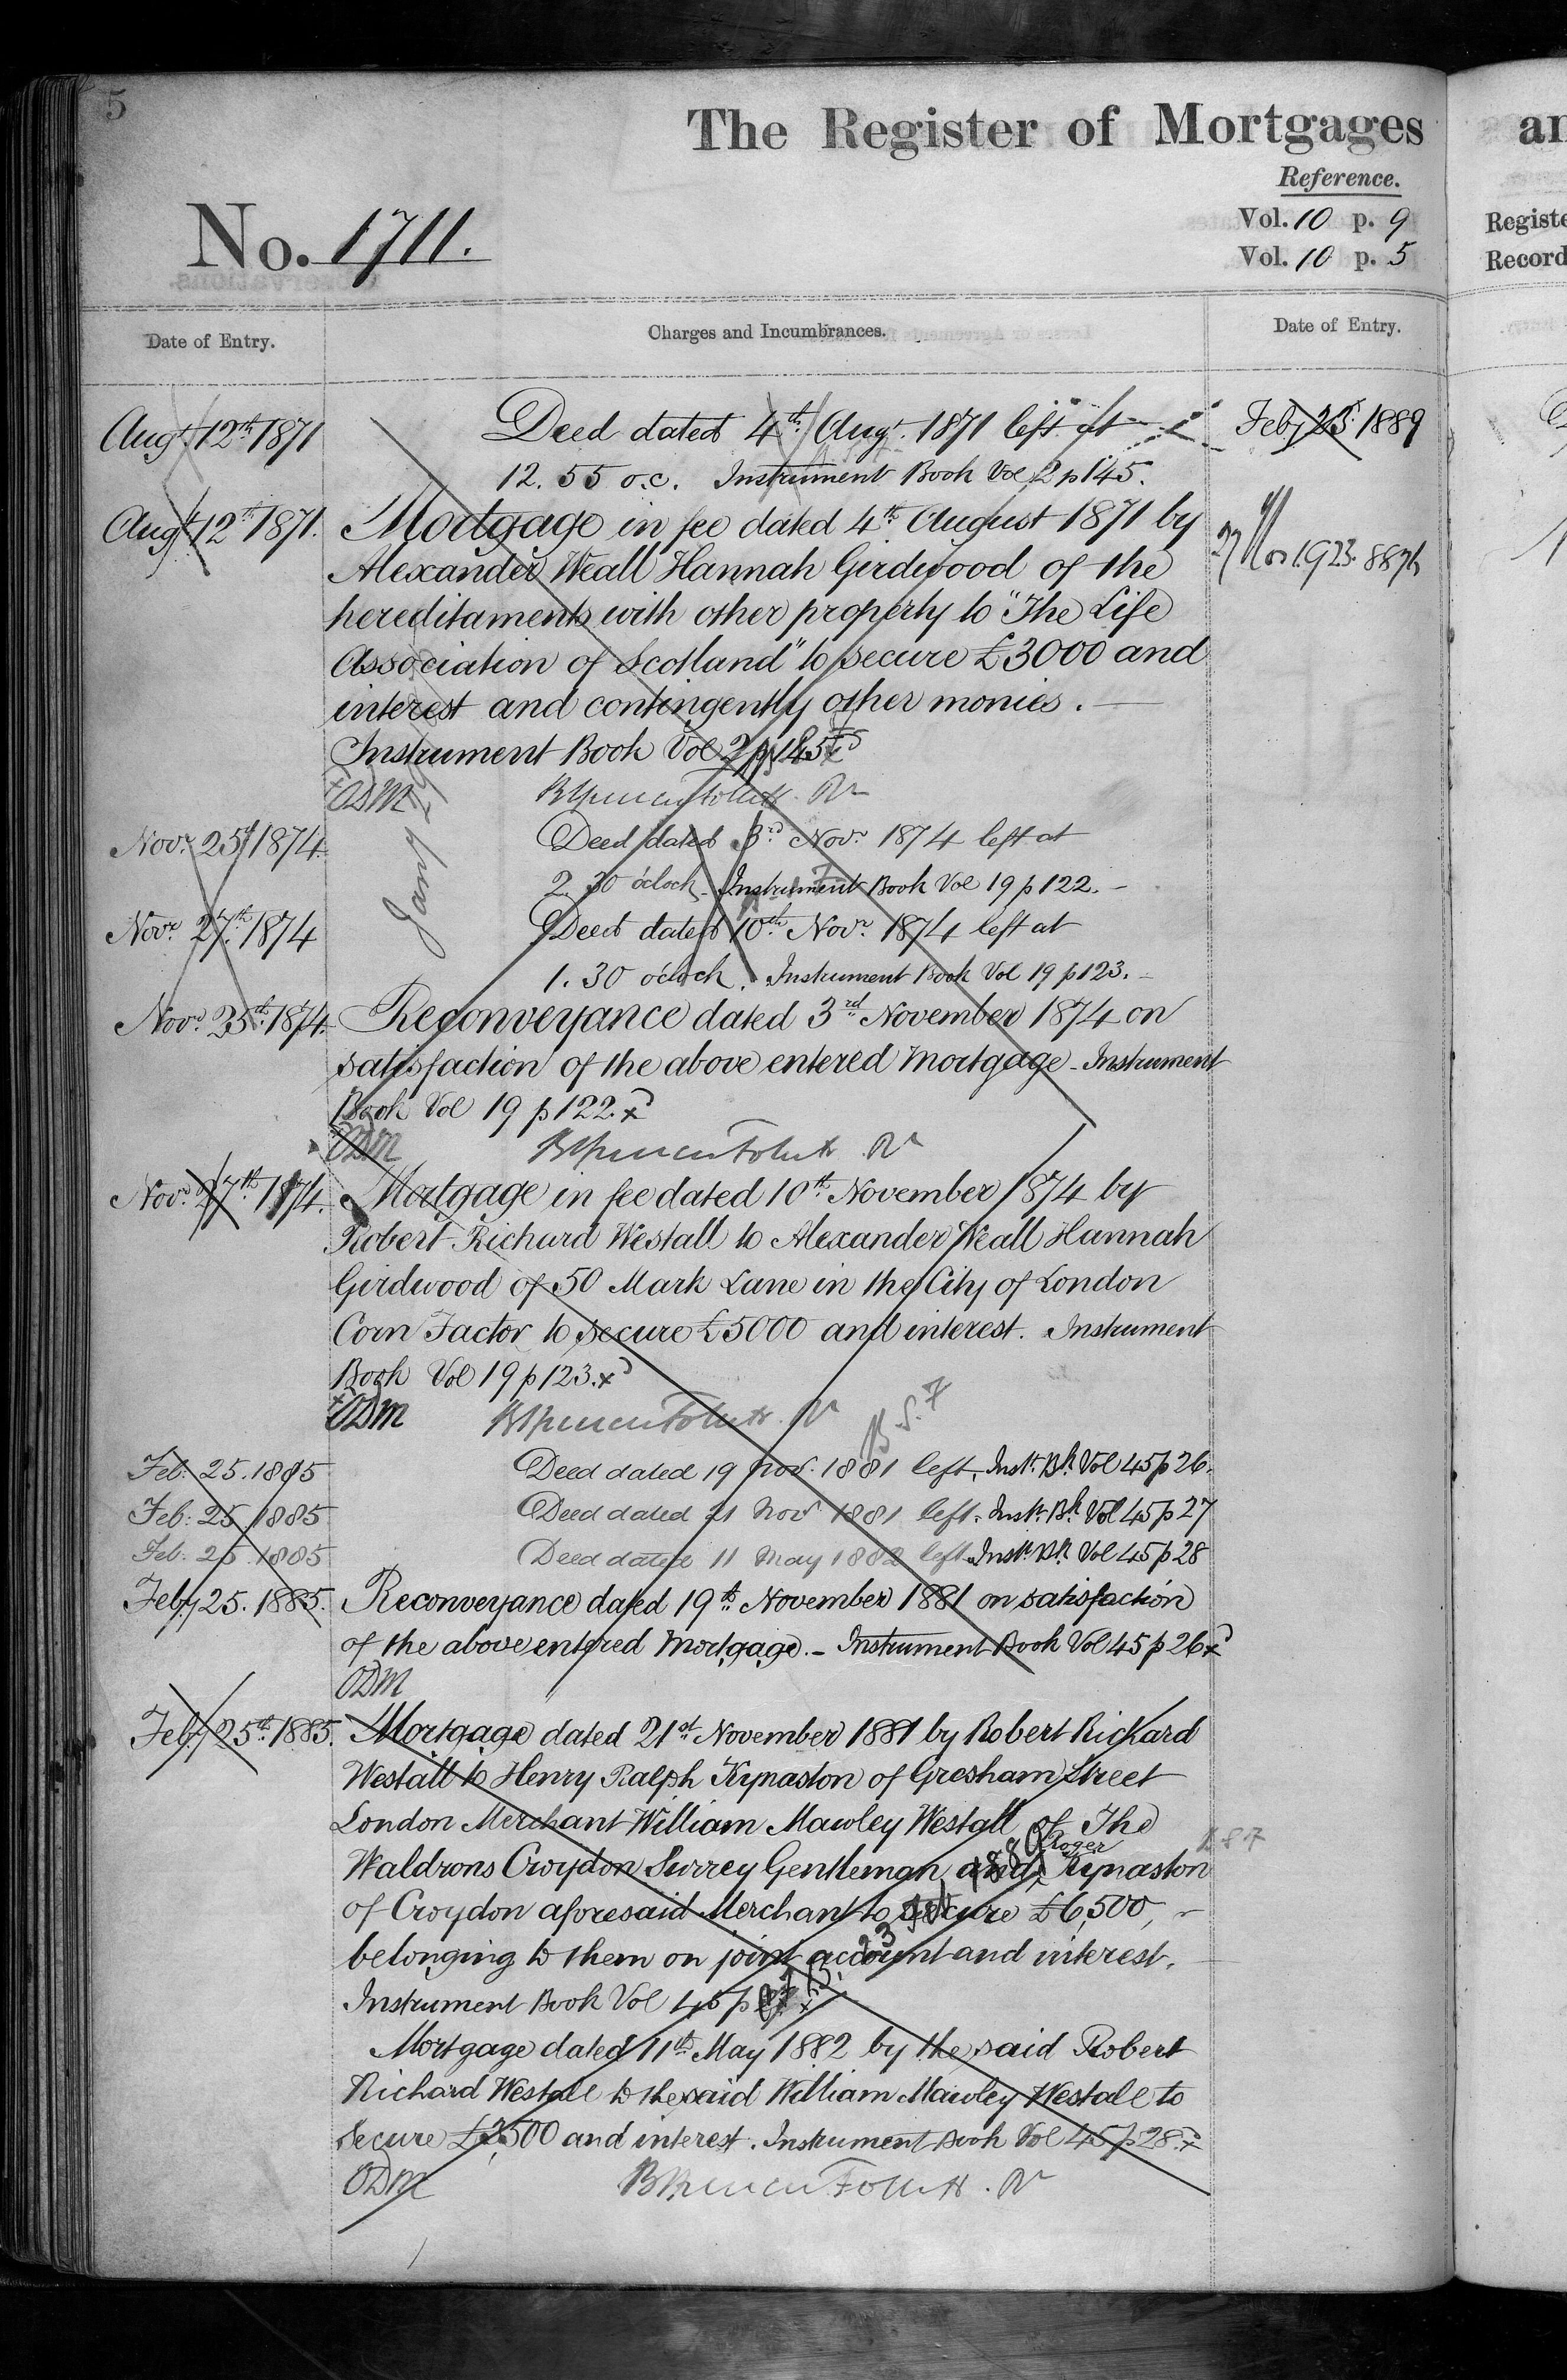 5
The Register of Mortgages
an
Reference.
No. 1711.
Vol. 10 p. 9
Vol. 10 p. 5
Registe
Record
Date of Entry.
Charges and Incumbrances.
Date of Entry.
Augt. 12th 1871
Deed dated 4th Augt. 1871 left at
Feby 25 1889
12. 55 o.c. Instrument Book Vol 2 p 145.
Augt. 12th 1871. Mortgage in fee dated 4th August 1871 by
Alexander Weall Hannah Girdwood of the
hereditaments with other property to "The Life
Association of Scotland" to secure £3000 and
interest and contingently other monies.
Instrument Book Vol 2 p 145
ODM
Novr. 25th 1874.
Deed dated 3rd Novr. 1874 left at
2. 30 o'clock. Instrument Book Vol 19 p 122.
Novr. 27th 1874
Deed dated 10th Novr. 1874 left at
1. 30 o'clock. Instrument Book Vol 19 p 123.
Novr. 25th 1874. Reconveyance dated 3rd November 1874 on
satisfaction of the above entered Mortgage - Instrument
Book Vol 19 p 122.x
ODM
Novr. 27th 1874. Mortgage in fee dated 10th November 1874 by
Robert Richard Westall to Alexander Weall Hannah
Girdwood of 50 Mark Lane in the City of London
Corn Factor to secure £5000 and interest. Instrument
Book Vol 19 p 123.x
ODM
Feb: 25. 1885
Deed dated 19 Nov. 1881 left. Inst. Bk. Vol 45 p 26.
Feb: 25 1885
Deed dated 21 Nov 1881 left. Inst. Bk. Vol 45 p 27
Feb: 25. 1885
Deed dated 11 May 1882 left. Inst. Bk. Vol 45 p 28
Feby. 25. 1885. Reconveyance dated 19th November 1881 on satisfaction
of the above entered Mortgage. - Instrument Book Vol 45 p 26 x
ODM
Feby 25th 1885. Mortgage dated 21st November 1881 by Robert Richard
Westall to Henry Ralph Kynaston of Gresham Street
London Merchant William Mawley Westall of The
Waldrons Croydon Surrey Gentleman and Roger Kynaston
of Croydon aforesaid Merchant to secure £6,500,
belonging to them on joint account and interest.
Instrument Book Vol 45 p 27 x
Mortgage dated 11th May 1882 by the said Robert
Richard Westall to the said William Mawley Westall to
secure £2500 and interest. Instrument Book Vol 45 p 28. x
ODM